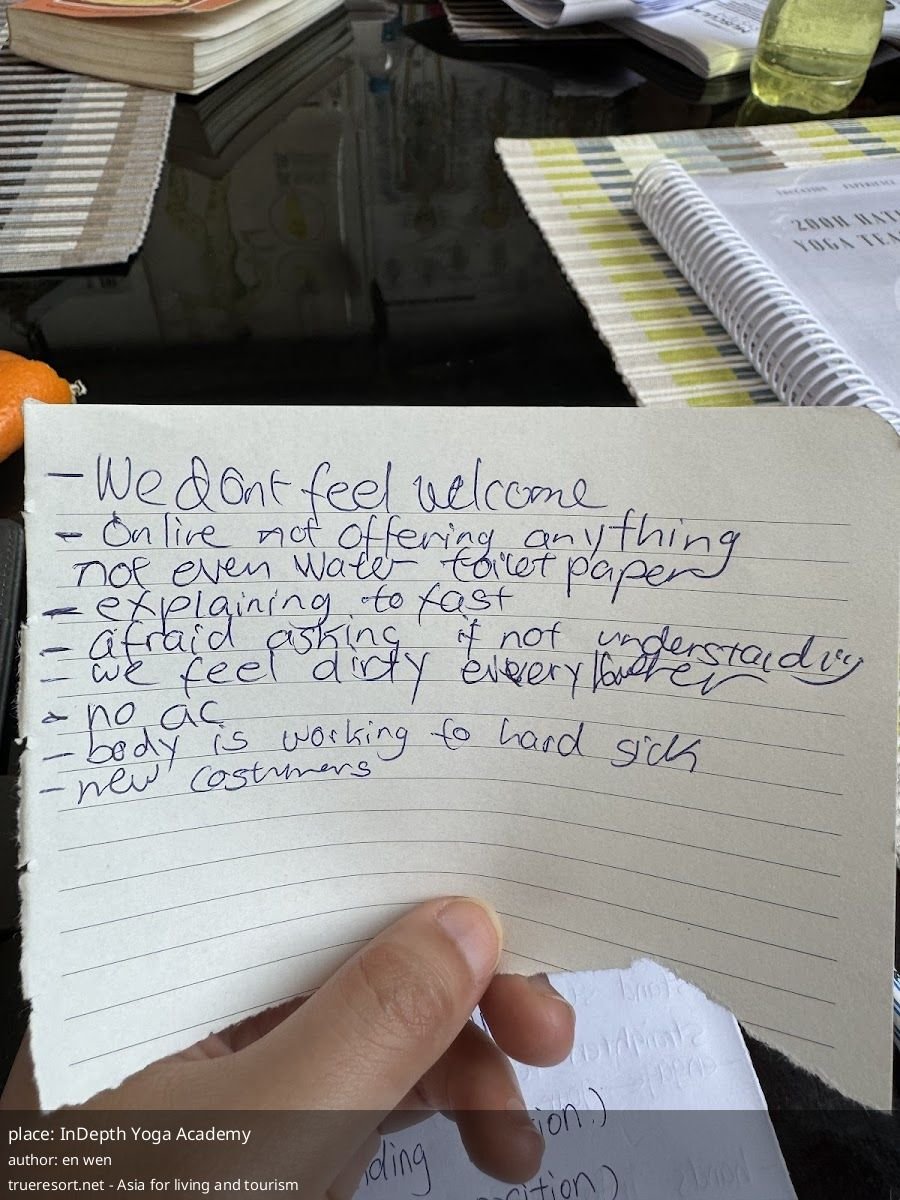 200H HAT
YOGA TEA
- We dont feel welcome
- Online not offering anything
not even water toilet paper
- explaining to fast
- afraid asking if not understanding
- we feel dirty every
- no ac
- body is working to hard sick
- new costumers
ion.)
ding
place: InDepth Yoga Academy
author: en wen
trueresort.net - Asia for living and tourism